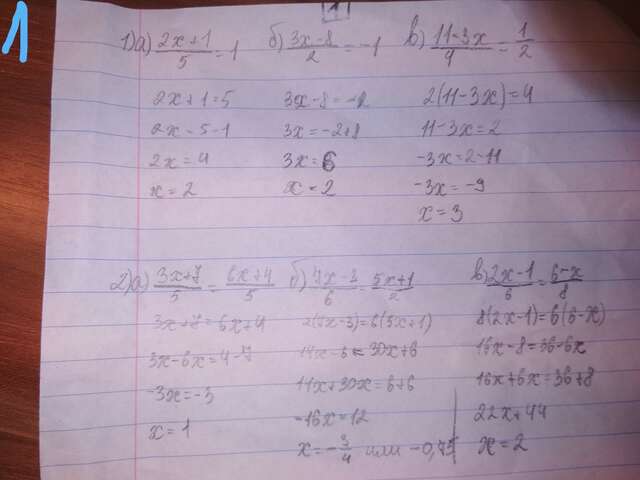 1
1
1) а) (2x+1)/5 = 1 б) (3x-8)/2 = -1 в) (11-3x)/4 = 1/2
2x+1=5 3x-8=-2 2(11-3x)=4
2x-5-1 3x=-2+8 11-3x=2
2x=4 3x=6 -3x=2-11
x=2 x=2 -3x=-9
x=3
2) а) (3x+7)/5 = (6x+4)/5 б) (7x-3)/6 = (5x+1)/2 в) (2x-1)/6 = (6-x)/8
3x+7=6x+4 2(7x-3)=6(5x+1) 8(2x-1)=6(6-x)
3x-6x=4-7 14x-6=30x+6 16x-8=36-6x
-3x=-3 14x+30x=6+6 16x+6x=36+8
x=1 -16x=12 22x+44
x=-3/4 или -0,75 x=2